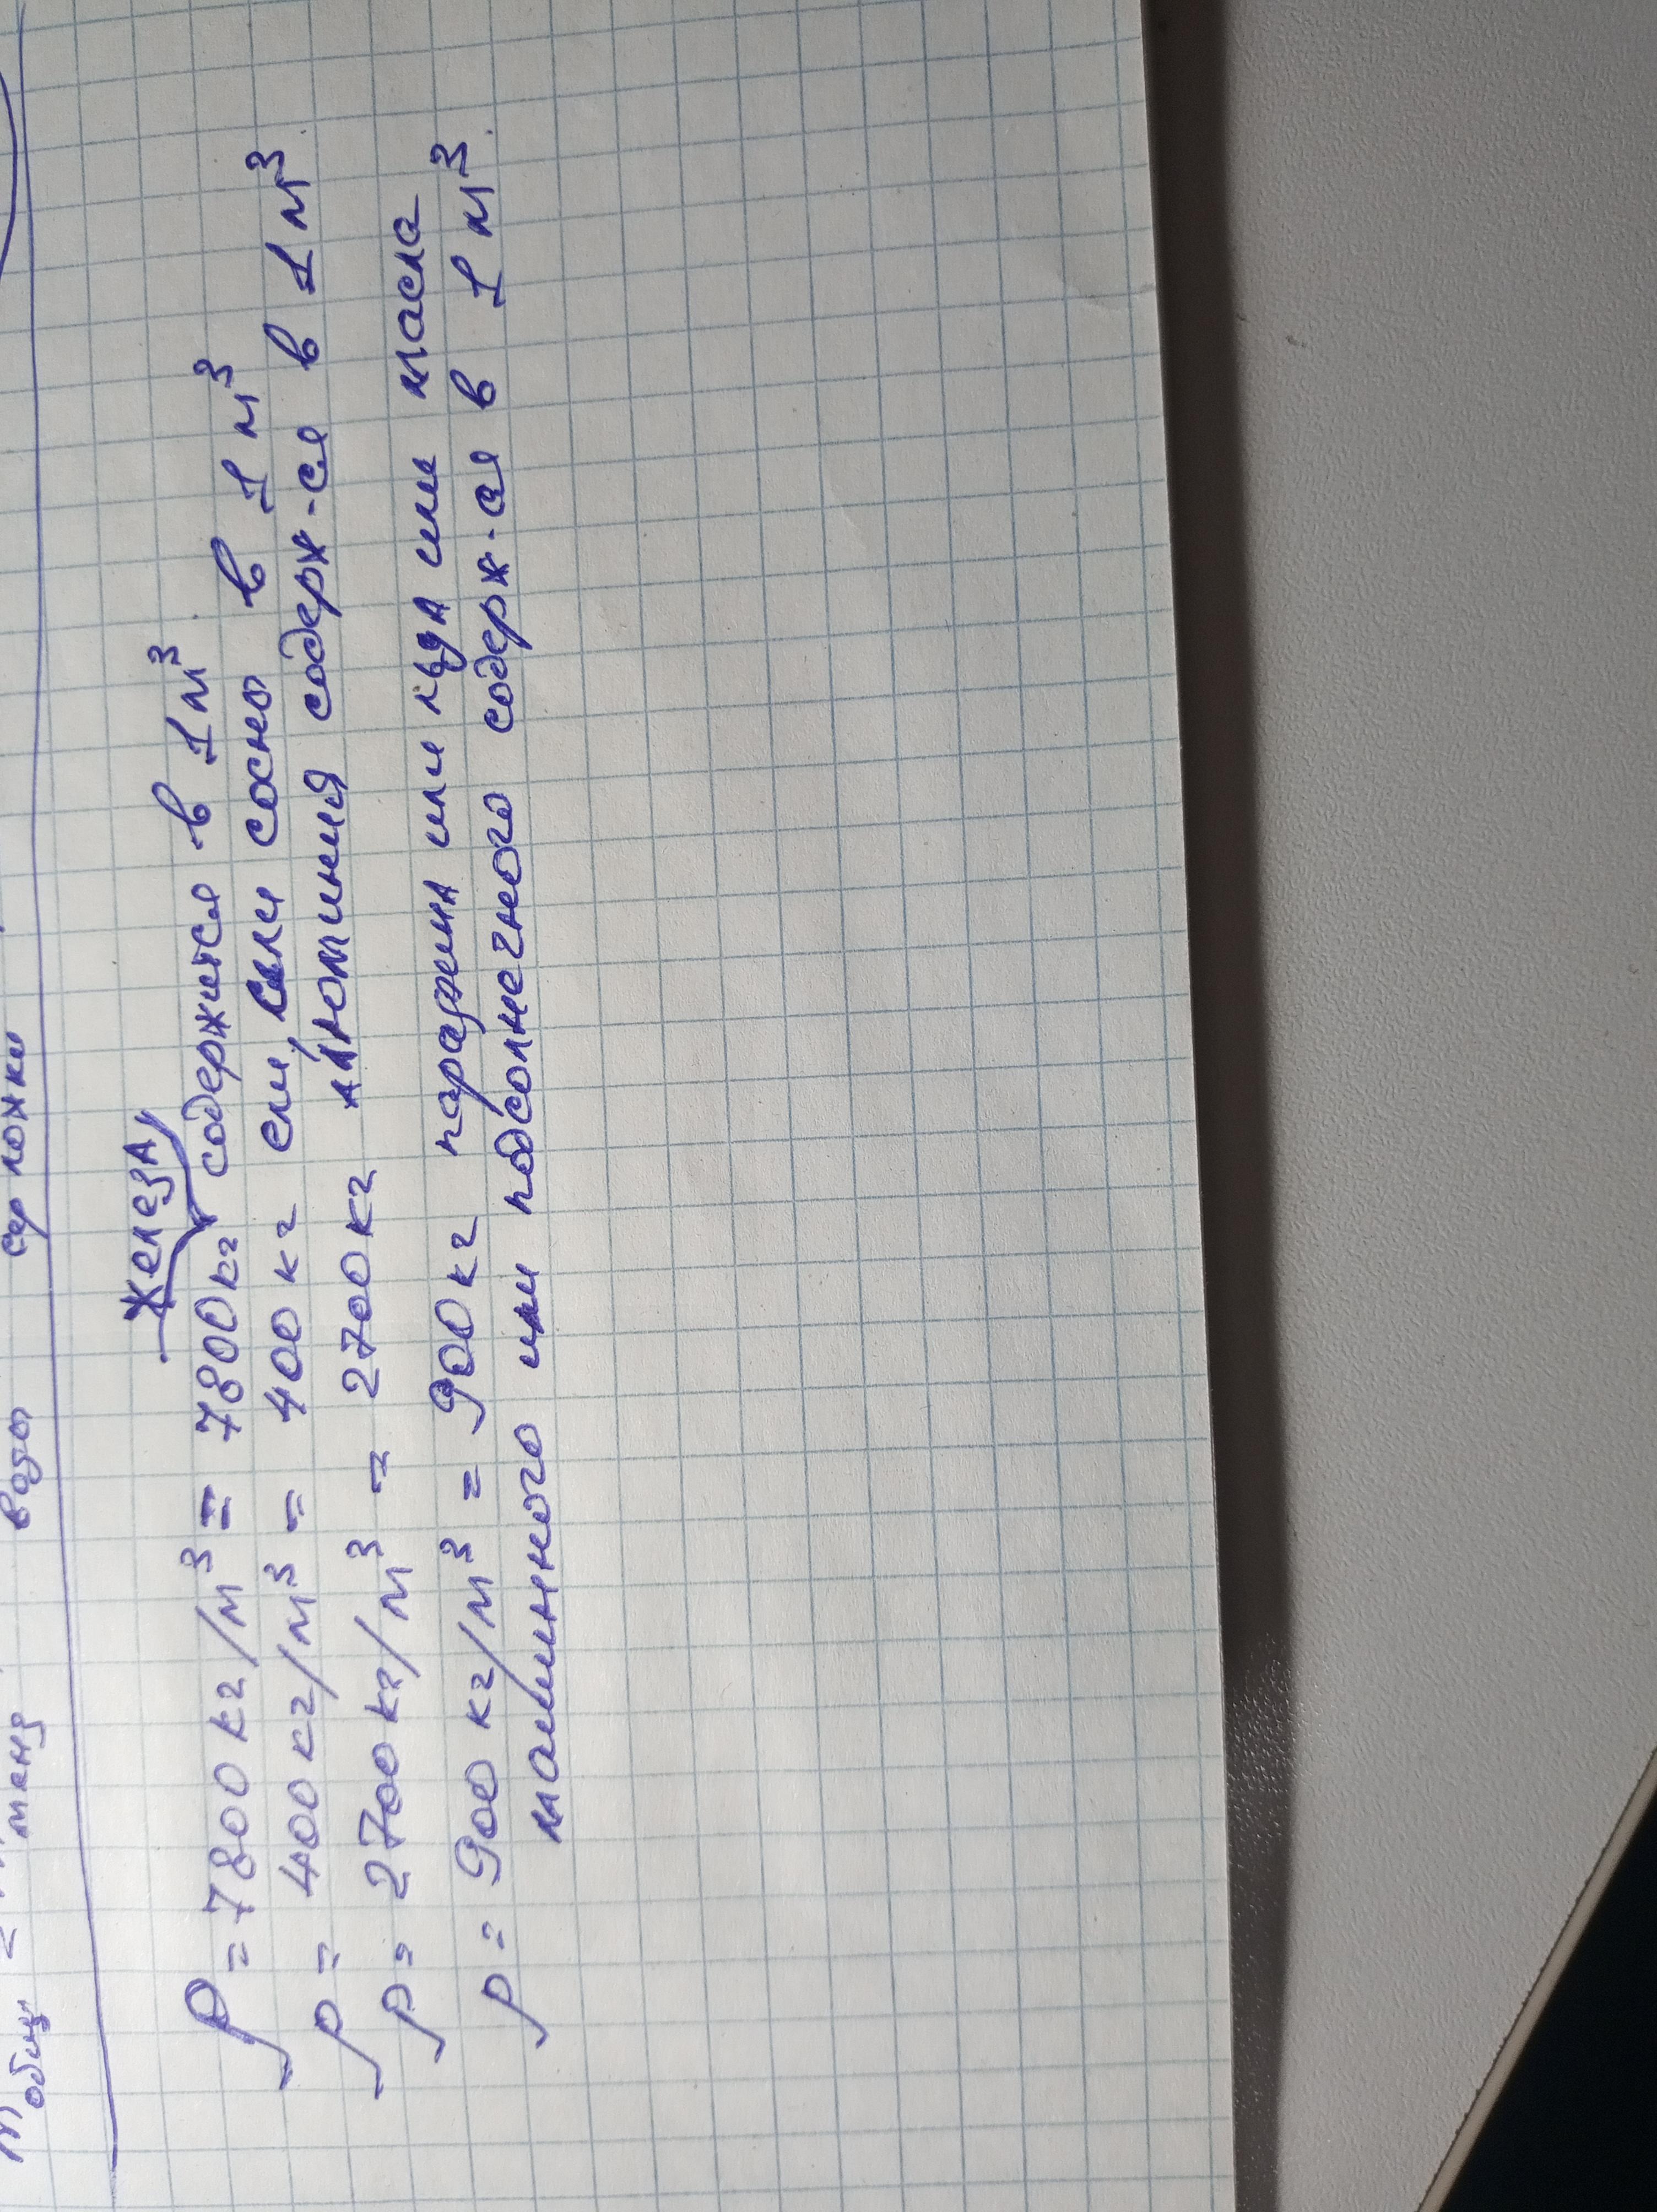 общ = меня воды сер ложки
железа
ρ = 7800 кг/м³ = 7800 кг содержится в 1 м³
ρ = 400 кг/м³ = 400 кг ели, или сосны в 1 м³
ρ = 2700 кг/м³ = 2700 кг алюминия содерж-ся в 1 м³
ρ = 900 кг/м³ = 900 кг парафина или льда или масла
машинного или подсолнечного содерж-ся в 1 м³